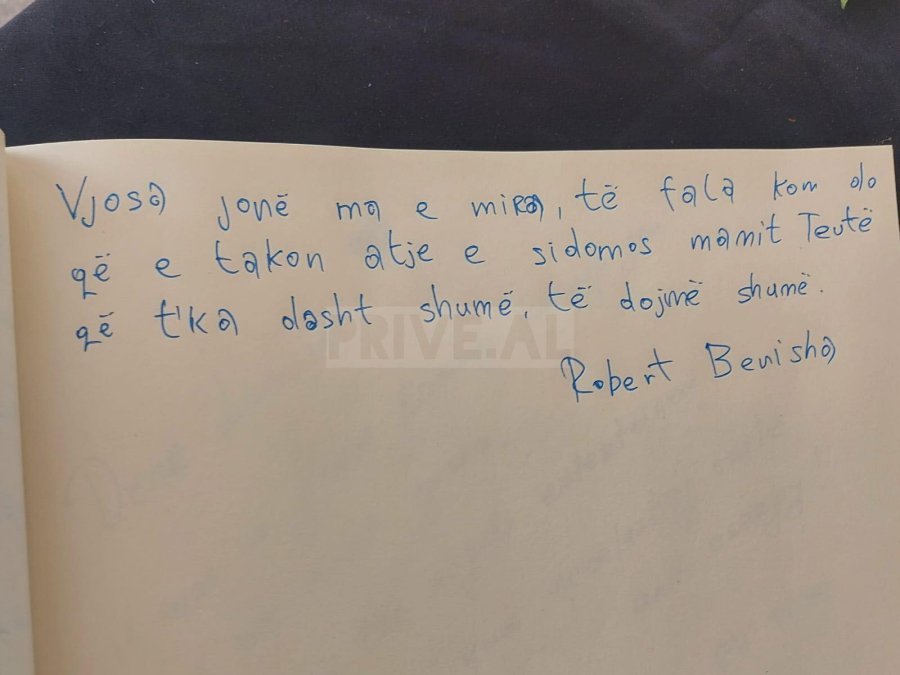 Vjosa jonë ma e mira, të fala kom do
që e takon atje e sidomos mamit Teutë
që t'ka dasht shumë, të dojmë shumë.
PRIVE.AL
Robert Berisha